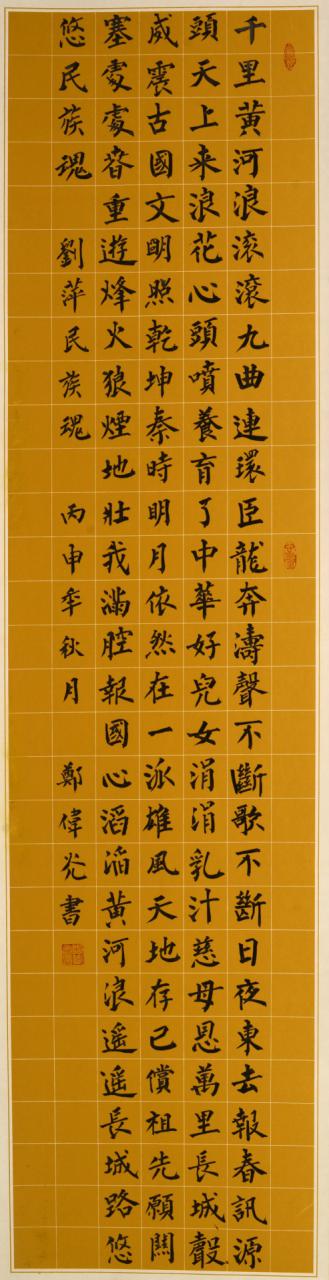 千里黃河浪滚滾九曲連環臣龍奔濤聲不斷歌不斷日夜東去報春訊源
頭天上来浪花心頭噴養育了中華好兒女涓涓乳汁慈母恩萬里長城聲
威震古國文明照乾坤秦時明月依然在一派雄風天地存已償祖先願關
塞處處春重遊烽火狼煙地壯我滿腔報國心滔滔黃河浪遥遥長城路悠
悠民族魂 劉萍民族魂 丙申年秋月 鄭偉光書